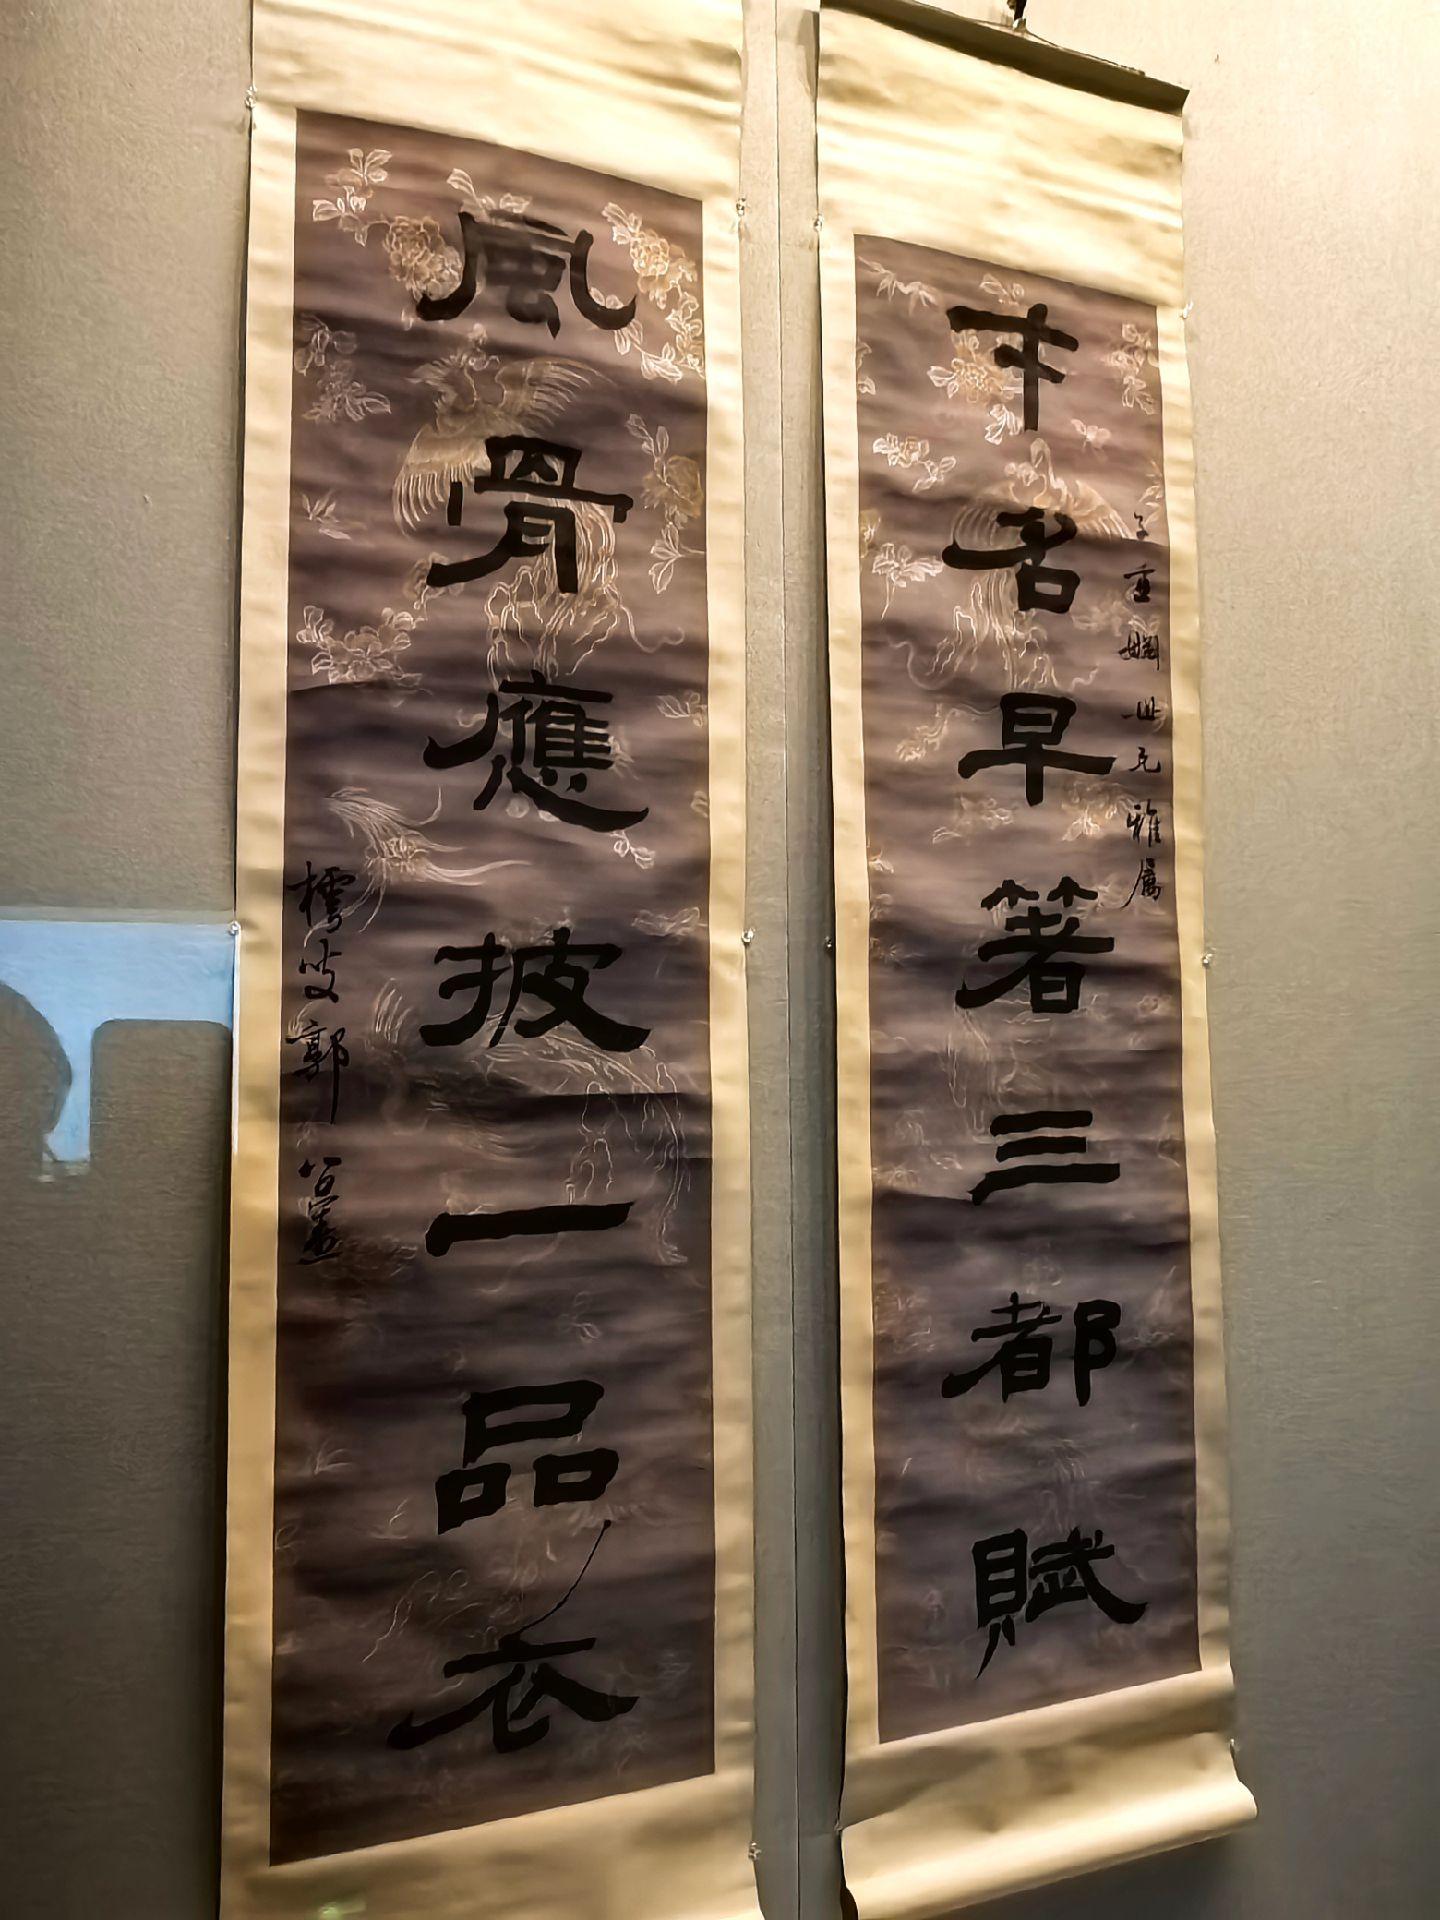 才名早著三都賦
子重姻世兄雅屬
風骨應披一品衣
樗叟郭